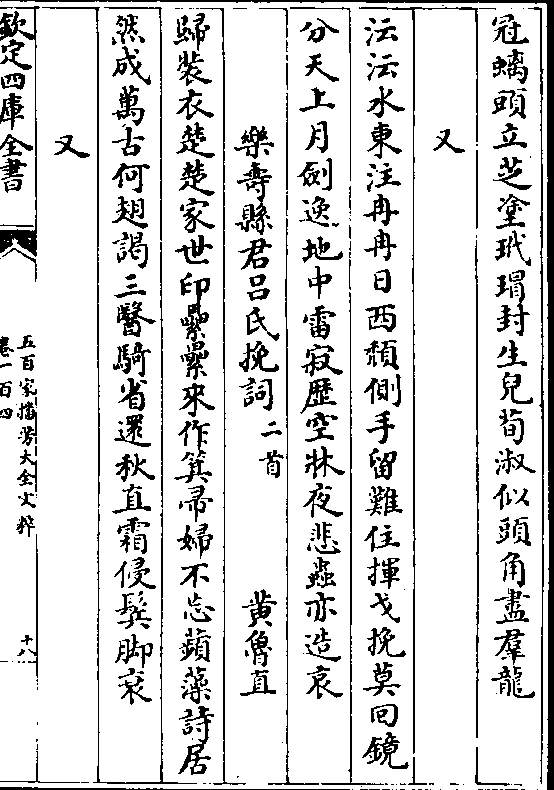 冠螭頭立芝塗玳瑁封生兒荀淑似頭角盡羣龍
又
沄沄水東注冉冉日西頽側手留難住揮戈挽莫回鏡
分天上月劍逸地中雷寂歴空牀夜悲蟲亦造哀
樂壽縣君吕氏挽詞二首 黄魯直
歸裝衣楚楚家世印纍纍來作箕帚婦不忘蘋藻詩居
然成萬古何趐謁三醫騎省還秋直霜侵鬂脚衰
又
欽定四庫全書
五百家播芳大全文粹
卷一百四
十八